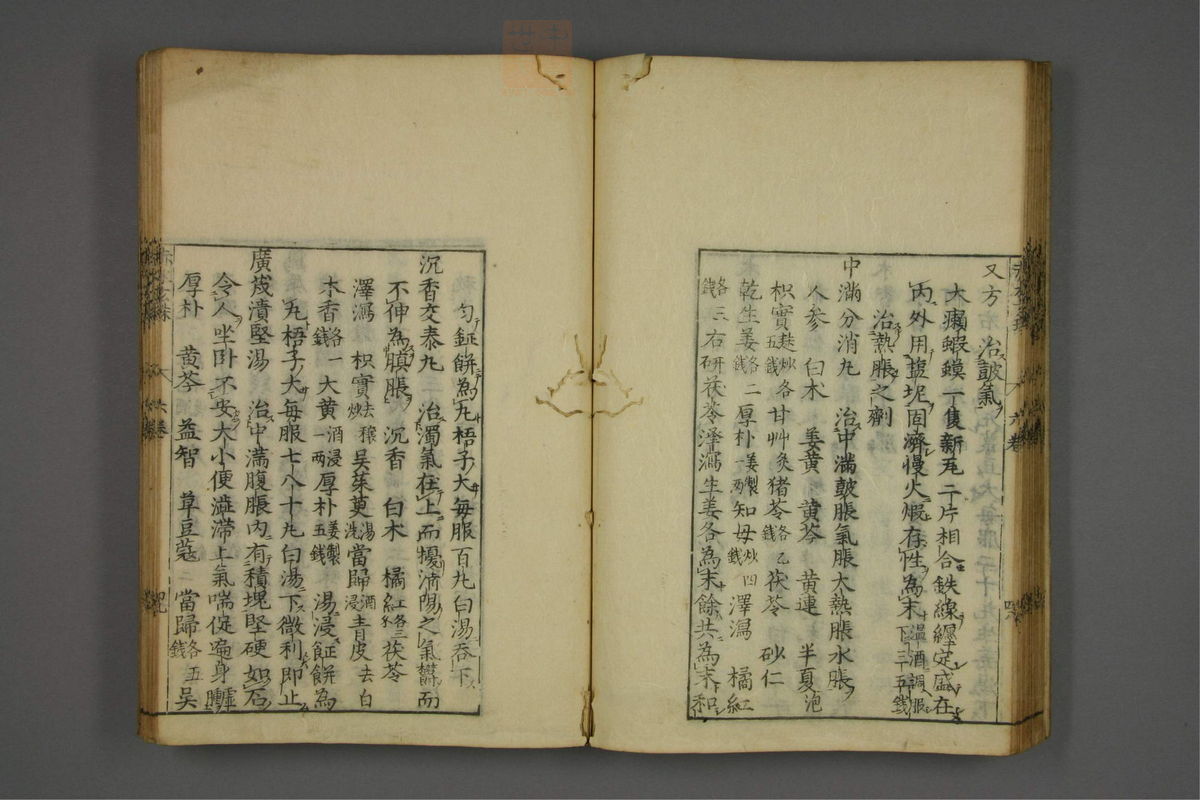 又方 治皷氣
大癩蝦蟆一隻新瓦二片相合鉄線纏定盛在
内外用塩坭固濟慢火煆存性為末温酒調服三五錢
治熱脹之劑
中滿分消丸 治中滿皷脹氣脹大熱脹水脹
人参 白术 姜黄 黄芩 黄連 半夏泡
枳實麸炒各五錢 甘艸灸猪苓各乙錢茯苓 砂仁
乾生姜各二錢厚朴姜製一两知母炒四錢澤瀉 橘紅
各三錢右研茯苓澤瀉生姜各為末餘共為末和
匀鉦餅為丸梧子大每服百丸白湯吞下
沉香交泰丸 治濁氣在上而擾清陽之氣欝而
不伸為䐜脹 沉香 白术 橘紅各三錢茯苓
澤瀉 枳實去穰炒吴茱萸湯洗當歸酒浸青皮去白
木香各一錢大黄酒浸一两厚朴姜製五錢湯浸鉦餅為
丸梧子大每服七八十丸白湯下微利即止
廣茂潰堅湯 治中滿腹脹内有積塊堅硬如石
令人坐卧不安大小便澁滯上氣喘促遍身臃
厚朴 黄芩 益智 草豆蔻 當歸各五錢吴
六卷
六卷